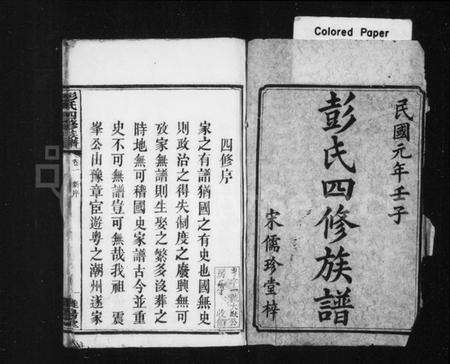 Colored Paper
民國元年壬子
彭氏四修族譜
宋儒珍堂梓
四修序
家之有譜猶國之有史也國無史
則政治之得失制度之廢興無可
攷家無譜則生娶之繁多沒葬之
時地無可稽國史家譜古今並重
史不可無譜豈可無哉我祖 震
峯公由豫章宦遊粤之潮州遂家
彭氏四修族譜